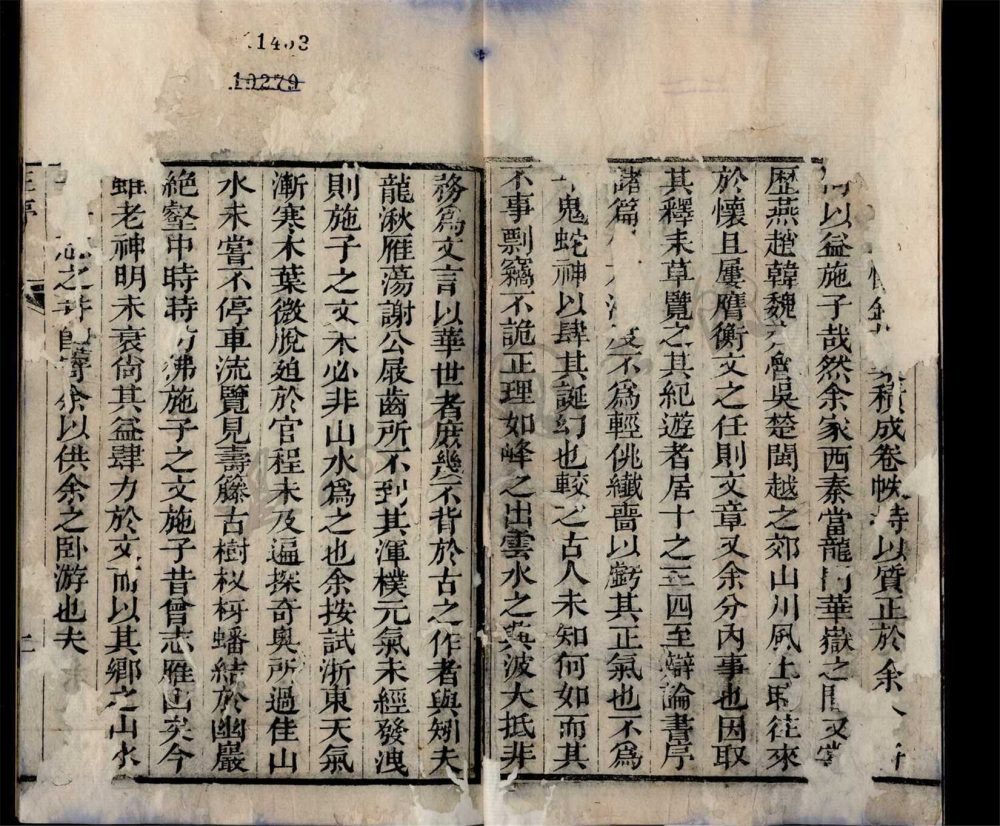 1403
19279
積成卷帙持以質正於余
以益施子哉然余家西秦當龍門華嶽之間又嘗
歷燕趙韓魏齊魯吳楚閩越之郊山川風土時往來
於懷且屢膺衡文之任則文章又余分內事也因取
其釋耒草覽之其紀遊者居十之三四至辯論書序
諸篇不為輕佻纖嗇以虧其正氣也不為
鬼蛇神以肆其誕幻也較之古人未知何如而其
不事剽竊不詭正理如峰之出雲水之興波大抵非
務為文言以華世者庶幾不背於古之作者與夫
龍湫雁蕩謝公屐齒所不到其渾樸元氣未經發洩
則施子之文未必非山水為之也余按試浙東天氣
漸寒木葉微脫廹於官程未及遍探奇奧所過佳山
水未嘗不停車流覽見壽籐古樹杈枒蟠結於幽巖
絶壑中時時彷彿施子之文施子昔曾志雁山矣今
雖老神明未衰尙其益肆力於文而以其鄉之山水
余以供余之卧游也夫